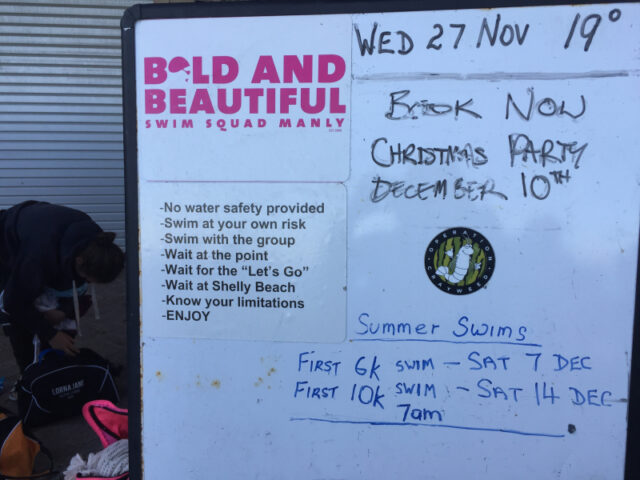 BOLD AND
BEAUTIFUL
SWIM SQUAD MANLY
WED 27 NOV 19°
BOOK NOW
CHRISTMAS PARTY
DECEMBER 10TH
-No water safety provided
-Swim at your own risk
-Swim with the group
-Wait at the point
-Wait for the "Let's Go"
-Wait at Shelly Beach
-Know your limitations
-ENJOY
OPERATION
CRAYWEED
Summer Swims
FIRST 6k SWIM - SAT 7 DEC
FIRST 10k SWIM - SAT 14 DEC
7am
LORNA JANE